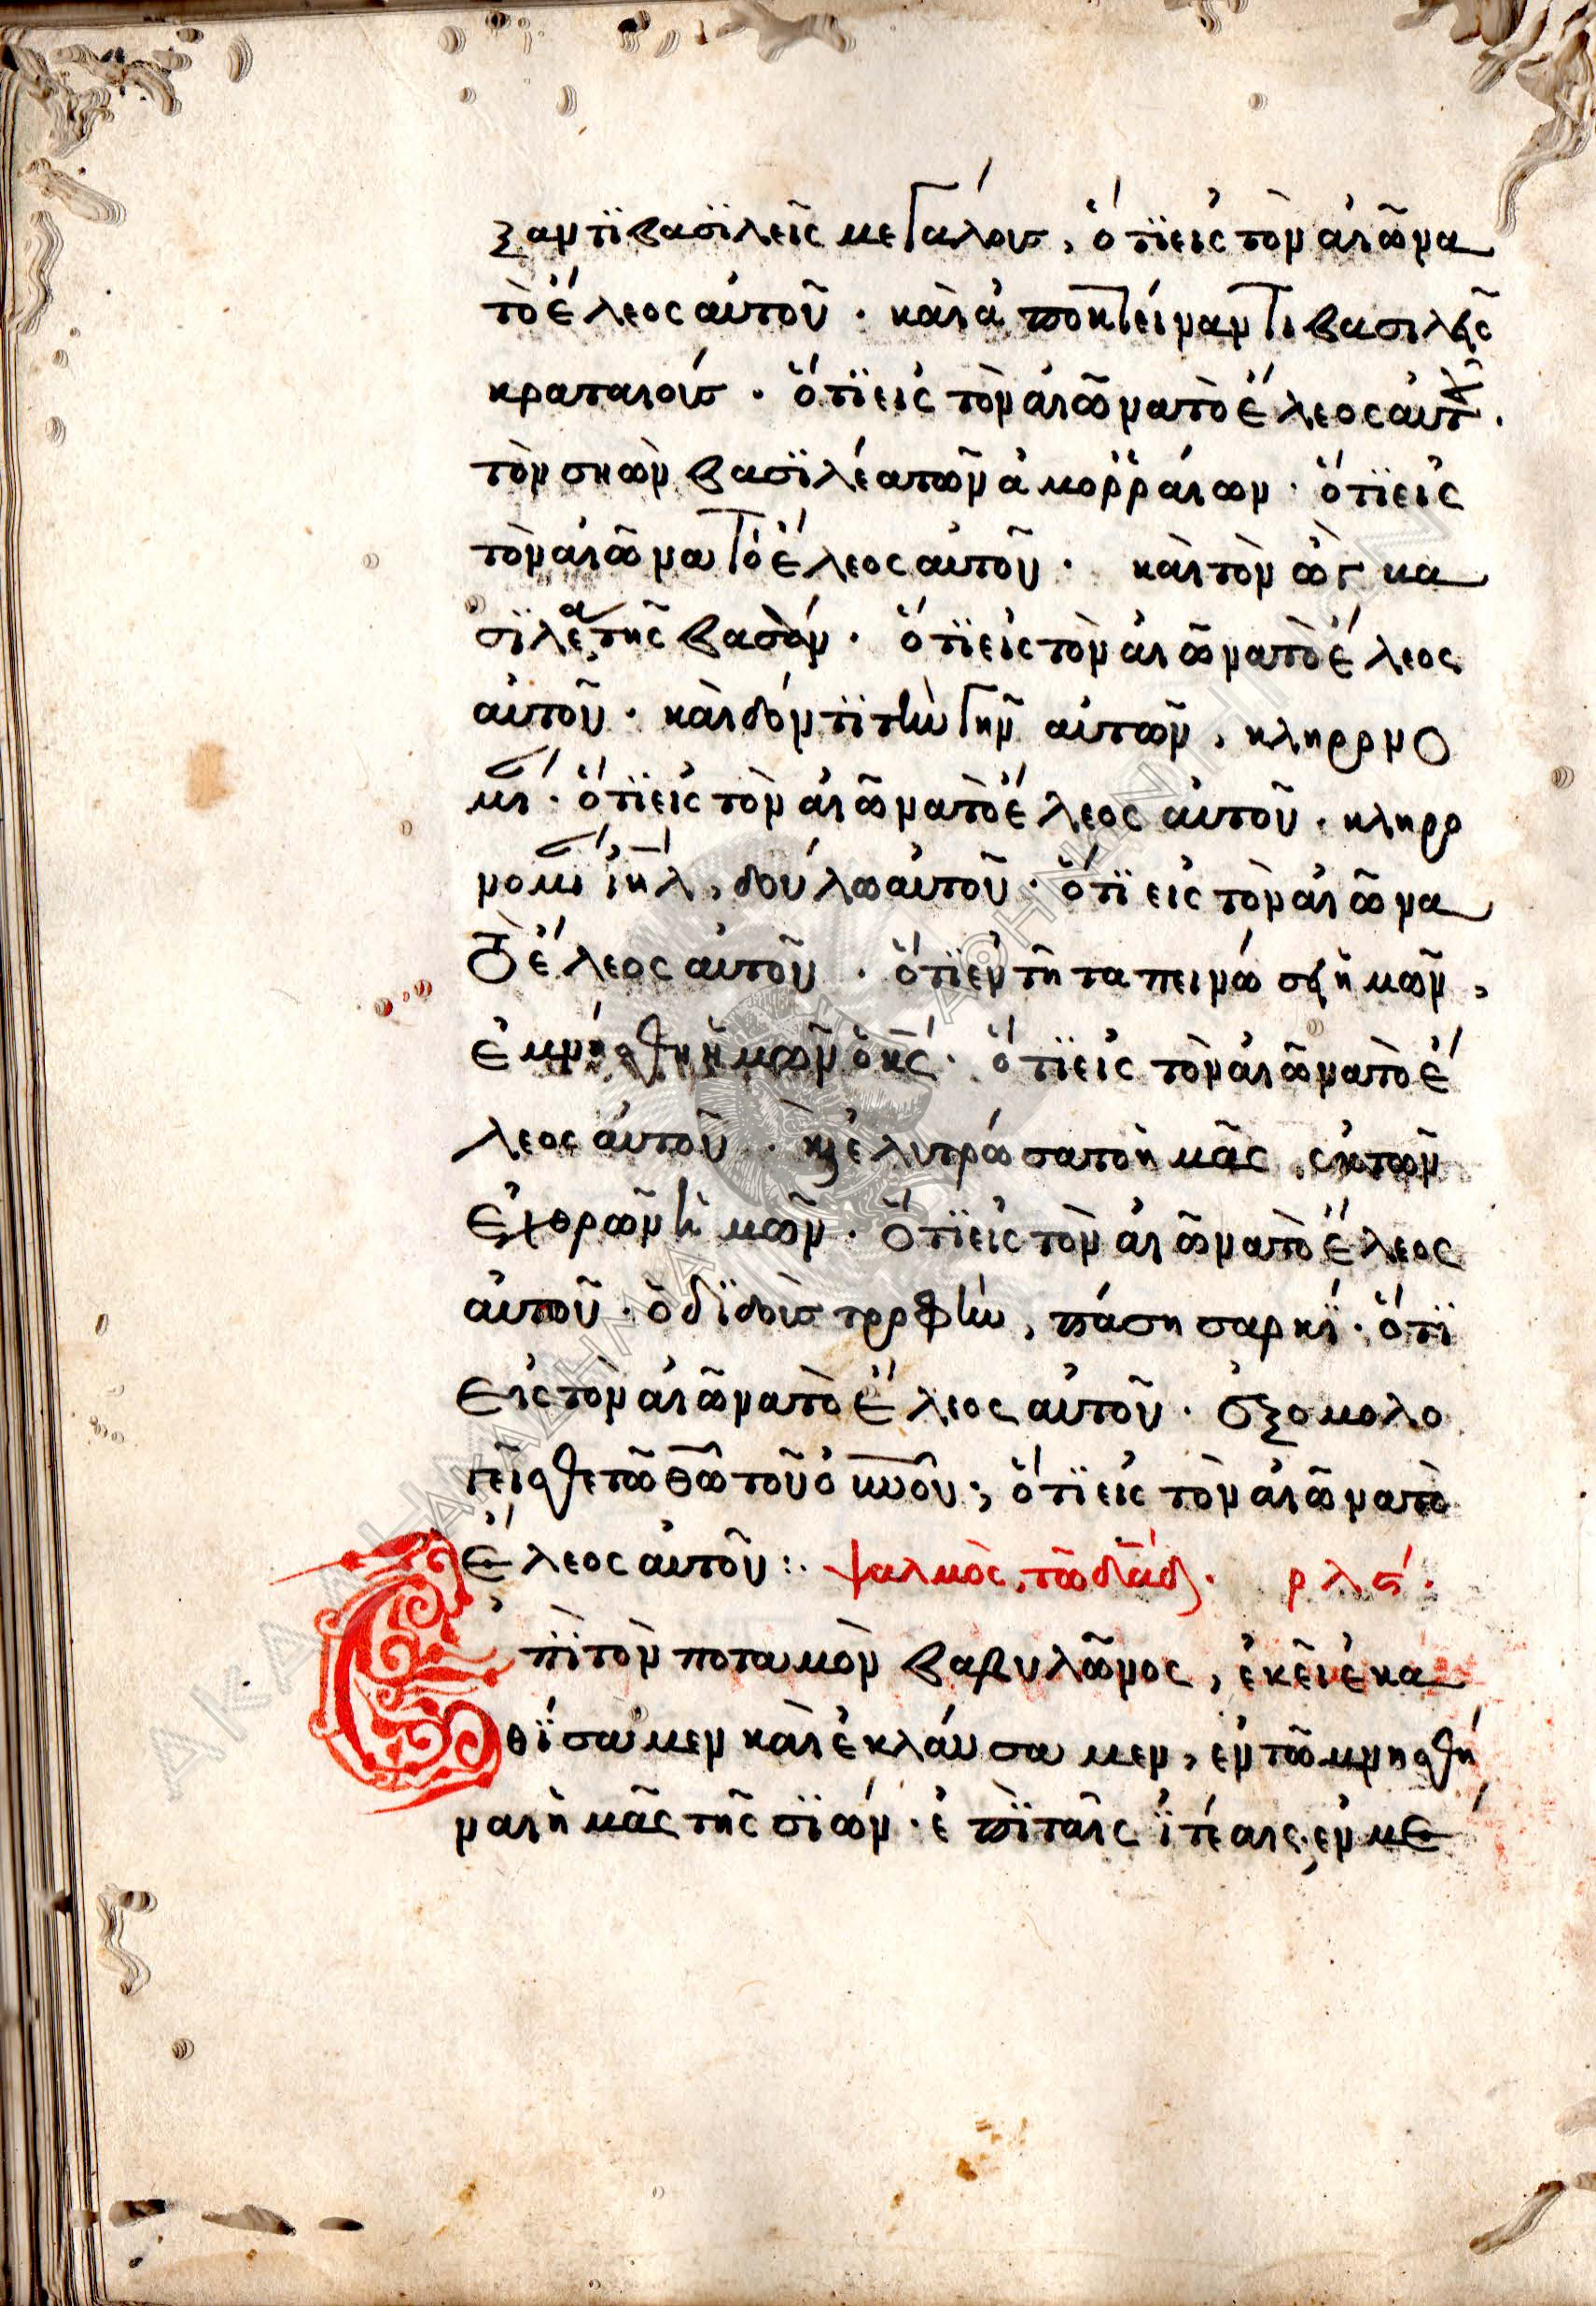 ξαντϊ βασϊλεῖς μεγάλους, ὅτϊ εἰς τὸν αἰῶνα
τὸ ἔλεος αὐτοῦ · καὶ ἀποκτείναντι βασιλεῖς
κραταιούς · ὅτϊ εἰς τὸν αἰῶνα τὸ ἔλεος αὐτοῦ ·
τὸν σηὼν βασϊλέα τῶν ἀμορραίων · ὅτϊ εἰς
τὸν αἰῶνα τὸ ἔλεος αὐτοῦ · καὶ τὸν ὢγ βα
σϊλέα τῆς βασάν · ὅτϊ εἰς τὸν αἰῶνα τὸ ἔλεος
αὐτοῦ · καὶ δόντϊ τὴν γῆν αὐτῶν, κληρονο
μίαν · ὅτϊ εἰς τὸν αἰῶνα τὸ ἔλεος αὐτοῦ · κληρο
νομίαν ἰηλ, δούλω αὐτοῦ · ὅτϊ εἰς τὸν αἰῶνα
τὸ ἔλεος αὐτοῦ · ὅτϊ ἐν τῆ ταπεινώσει ἡμῶν,
ἐμνήσθη ἡμῶν ὁ κς · ὅτϊ εἰς τὸν αἰῶνα τὸ ἔ
λεος αὐτοῦ · καὶ ἐλυτρώσατο ἡμᾶς, ἐκ τῶν
ἐχθρῶν ἡμῶν · ὅτϊ εἰς τὸν αἰῶνα τὸ ἔλεος
αὐτοῦ · ὁ δϊδοὺς τροφὴν, πάση σαρκΐ · ὅτϊ
εἰς τὸν αἰῶνα τὸ ἔλεος αὐτοῦ · ἐξομολο
γεῖσθε τῶ θῶ τοῦ οὐνοῦ · ὅτϊ εἰς τὸν αἰῶνα τὸ
ἔλεος αὐτοῦ :· ψαλμὸς, τῶ δαδ · ρλς ·
Ἐπϊ τὸν ποταμὸν βαβυλῶνος, ἐκεῖ ἐκα
θΐσαμεν καὶ ἐκλαύσαμεν, ἐν τῶ μνησθῆ
ναι ἡμᾶς τῆς σϊών · ἐπϊ ταῖς ϊτέαις, ἐν μέ